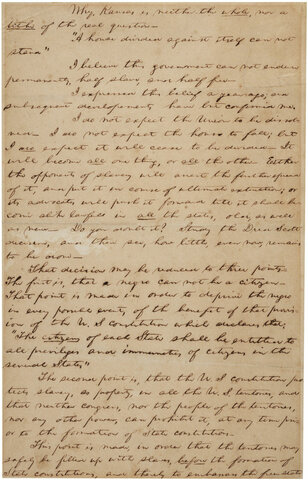 Why, Kansas is neither the whole, nor a
tithe of the real question—
"A house divided against itself can not
stand"
I believe this government can not endure
permanently, half slave, and half free—
I expressed this belief a year ago; and
subsequent developments have but confirmed me.
I do not expect the Union to be dissolv-
ed— I do not expect the house to fall; but
I do expect it will cease to be divided— It
will become all one thing, or all the other. Either
the opponents of slavery will arrest the further spread
of it, and put it in course of ultimate extinction; or
its advocates will push it forward till it shall be-
come alike lawful in all the states, old, as well
as new— Do you doubt it? Study the Dred Scott
decision, and then see, how little, even now, remains
to be done—
That decision may be reduced to three points—
The first is, that a negro can not be a citizen—
That point is made in order to deprive the negro
in every possible event, of the benefit of that provis-
ion of the U. S constitution which declares that,
"The citizens of each State shall be entitled to
all privileges and immunities of citizens in the
several States"
The second point is, that the U. S constitution pro-
tects slavery, as property, in all the U. S. teritories, and
that neither congress, nor the people of the teritories,
nor any other power, can prohibit it, at any time prior
to the formation of State constitutions—
This point is made, in order that the teritories may
safely be filled up with slaves, before the formation of
State constitutions, and thereby to embarrass the free state